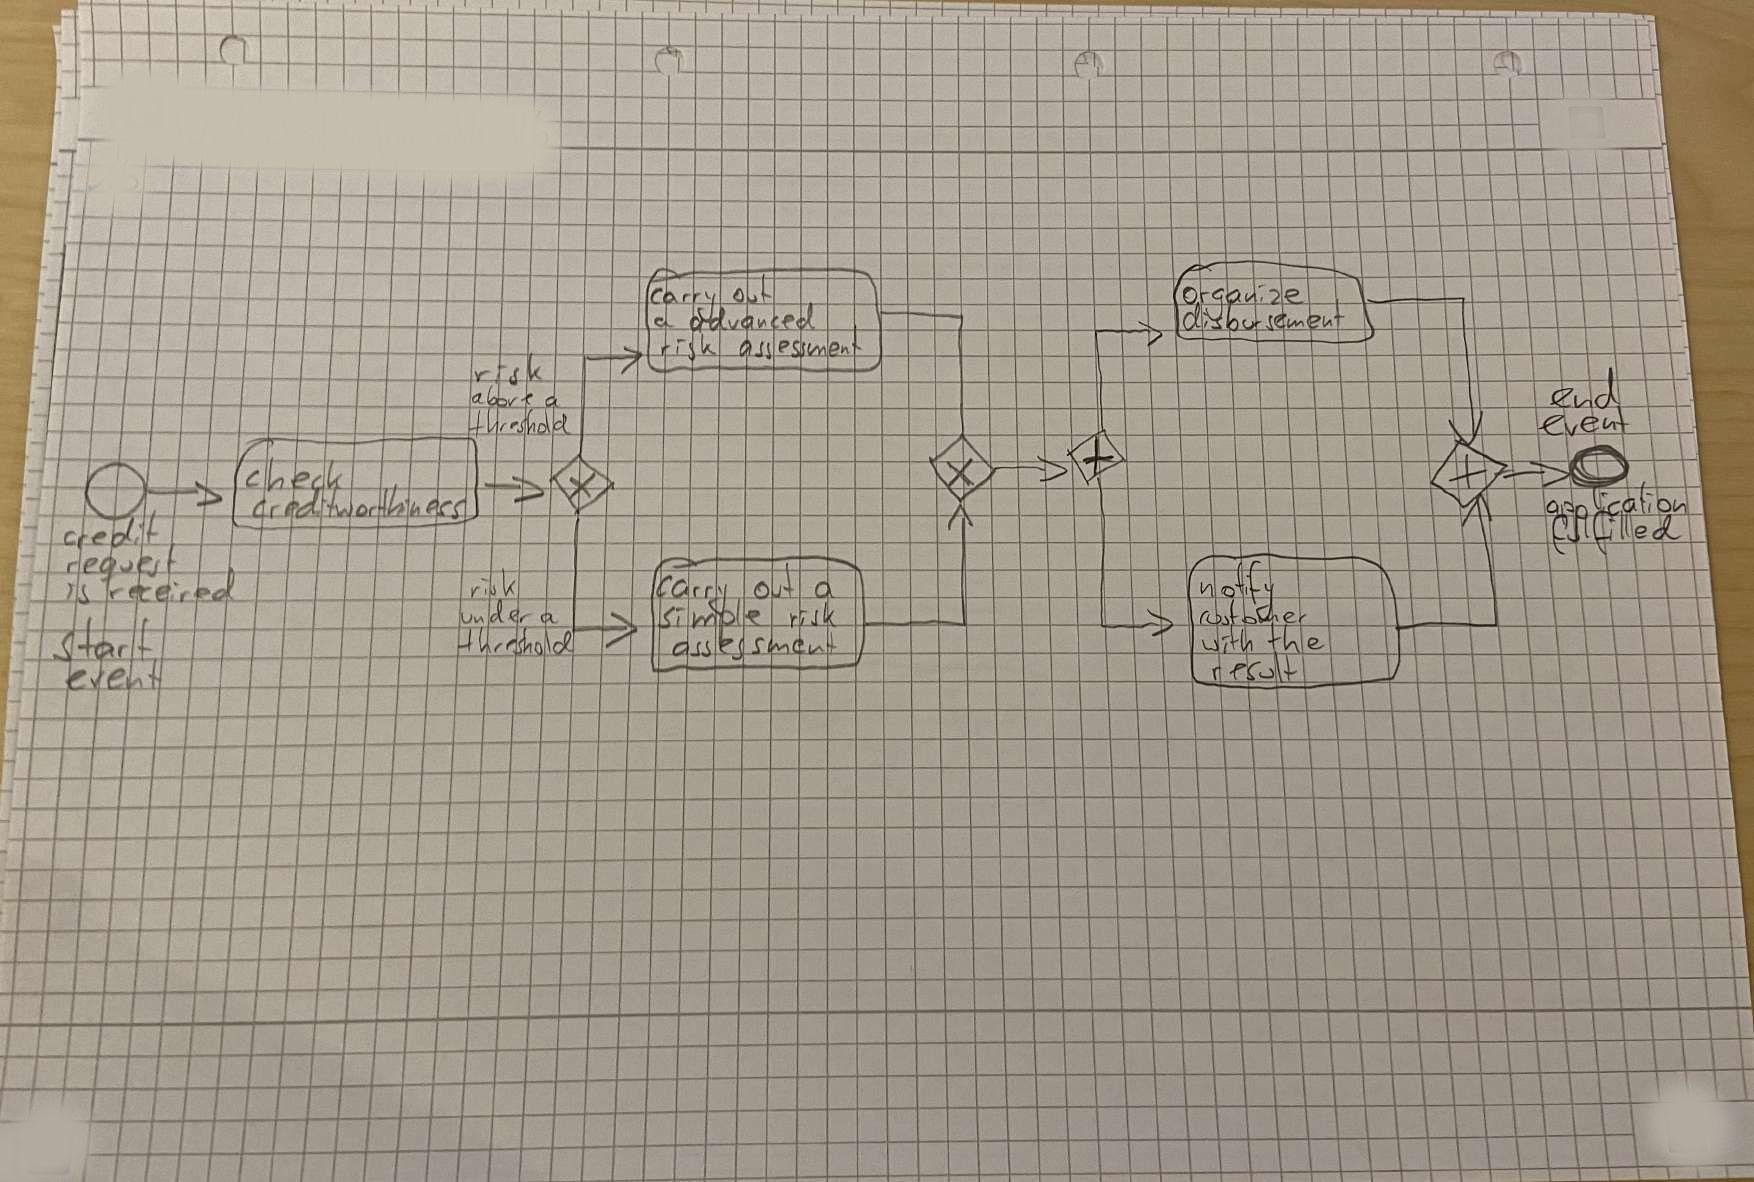 credit
request
is received
start
event
check
creditworthiness
risk
above a
threshold
risk
under a
threshold
carry out
a advanced
risk assessment
carry out a
simple risk
assessment
organize
disbursement
notify
with the
result
end
event
application
fulfilled